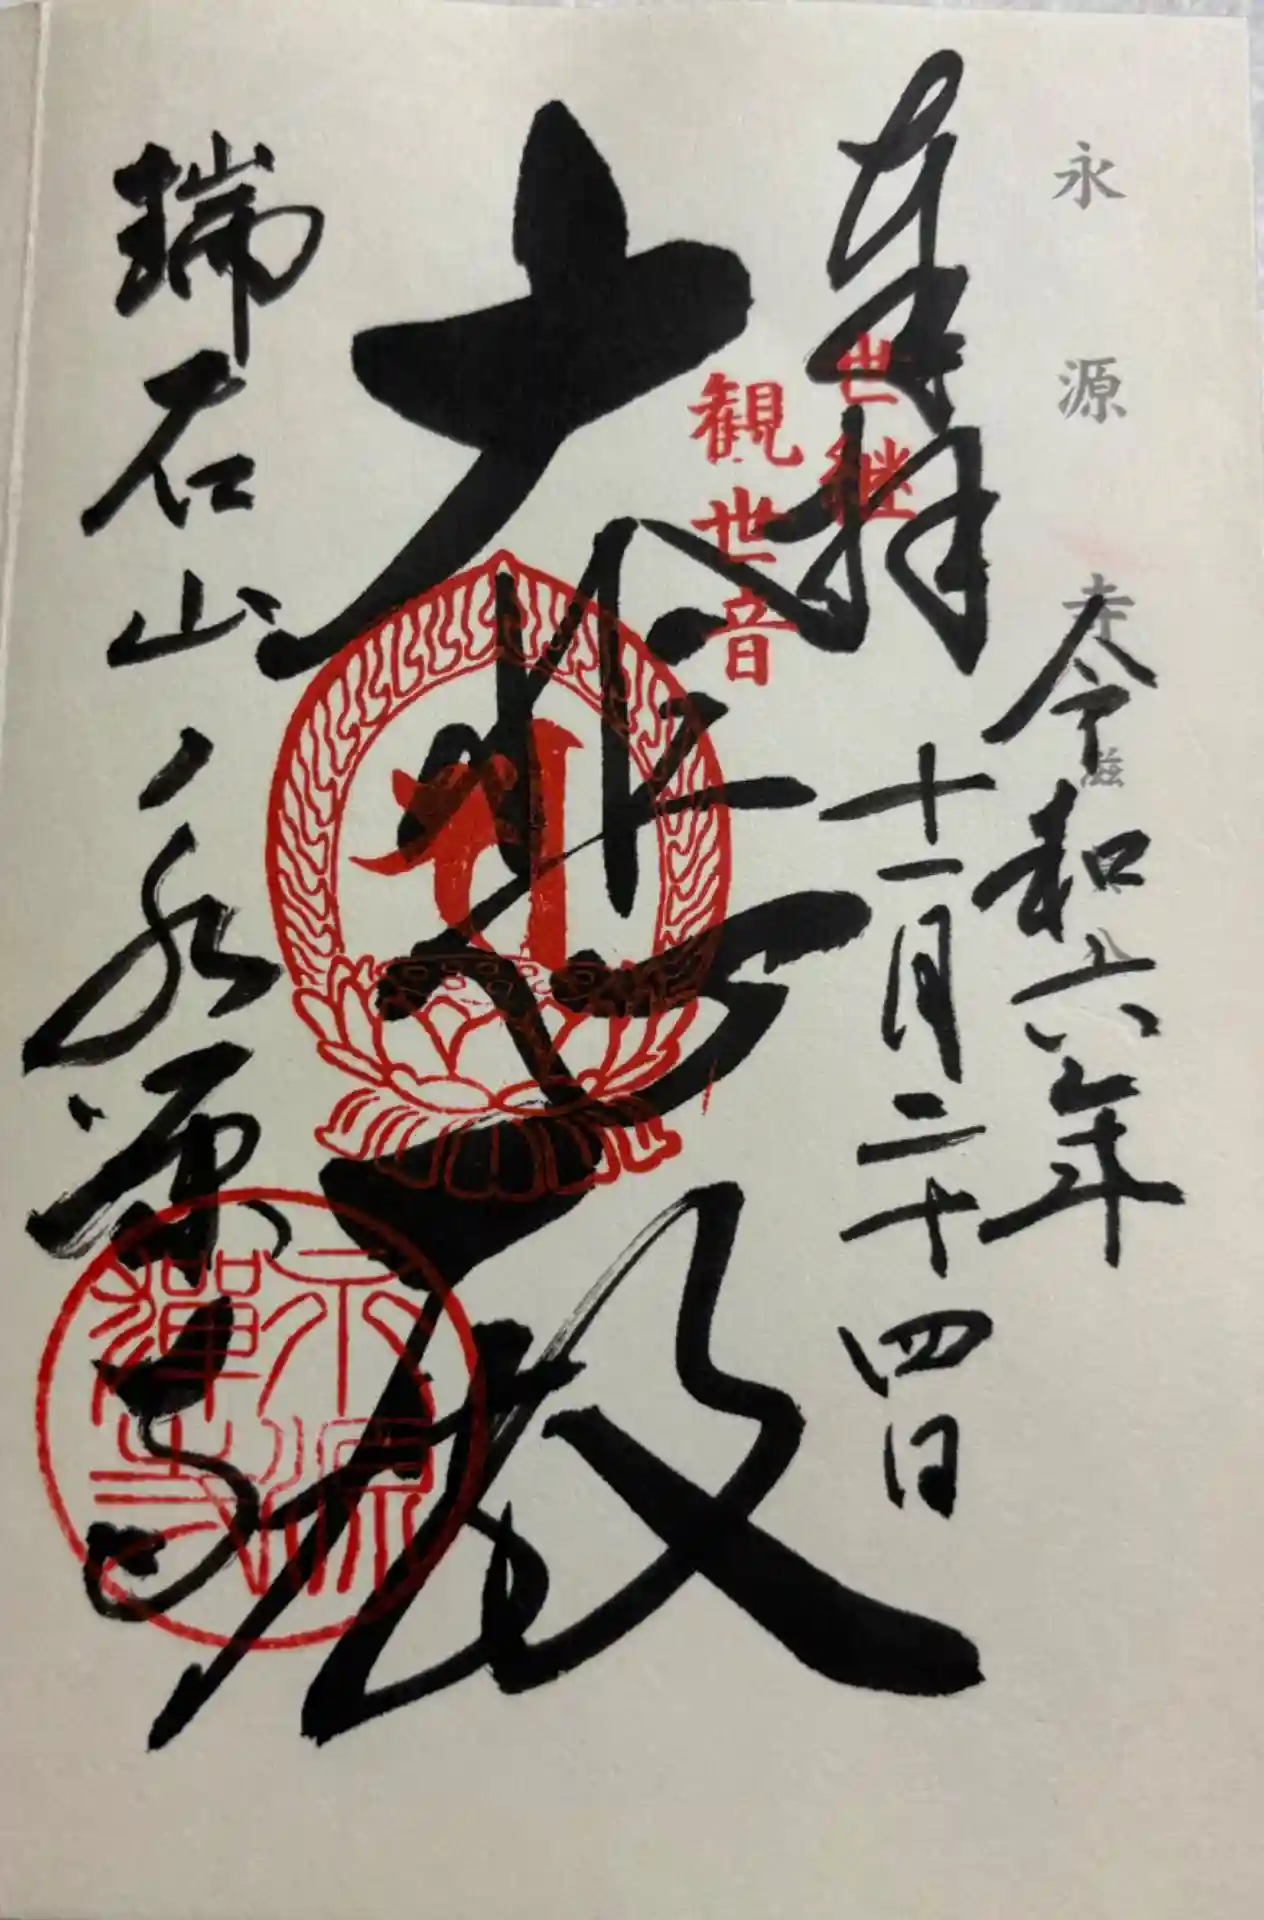 永源寺
奉拝
令和六年
十一月二十四日
世継
観世音
大悲殿
瑞石山 永源寺